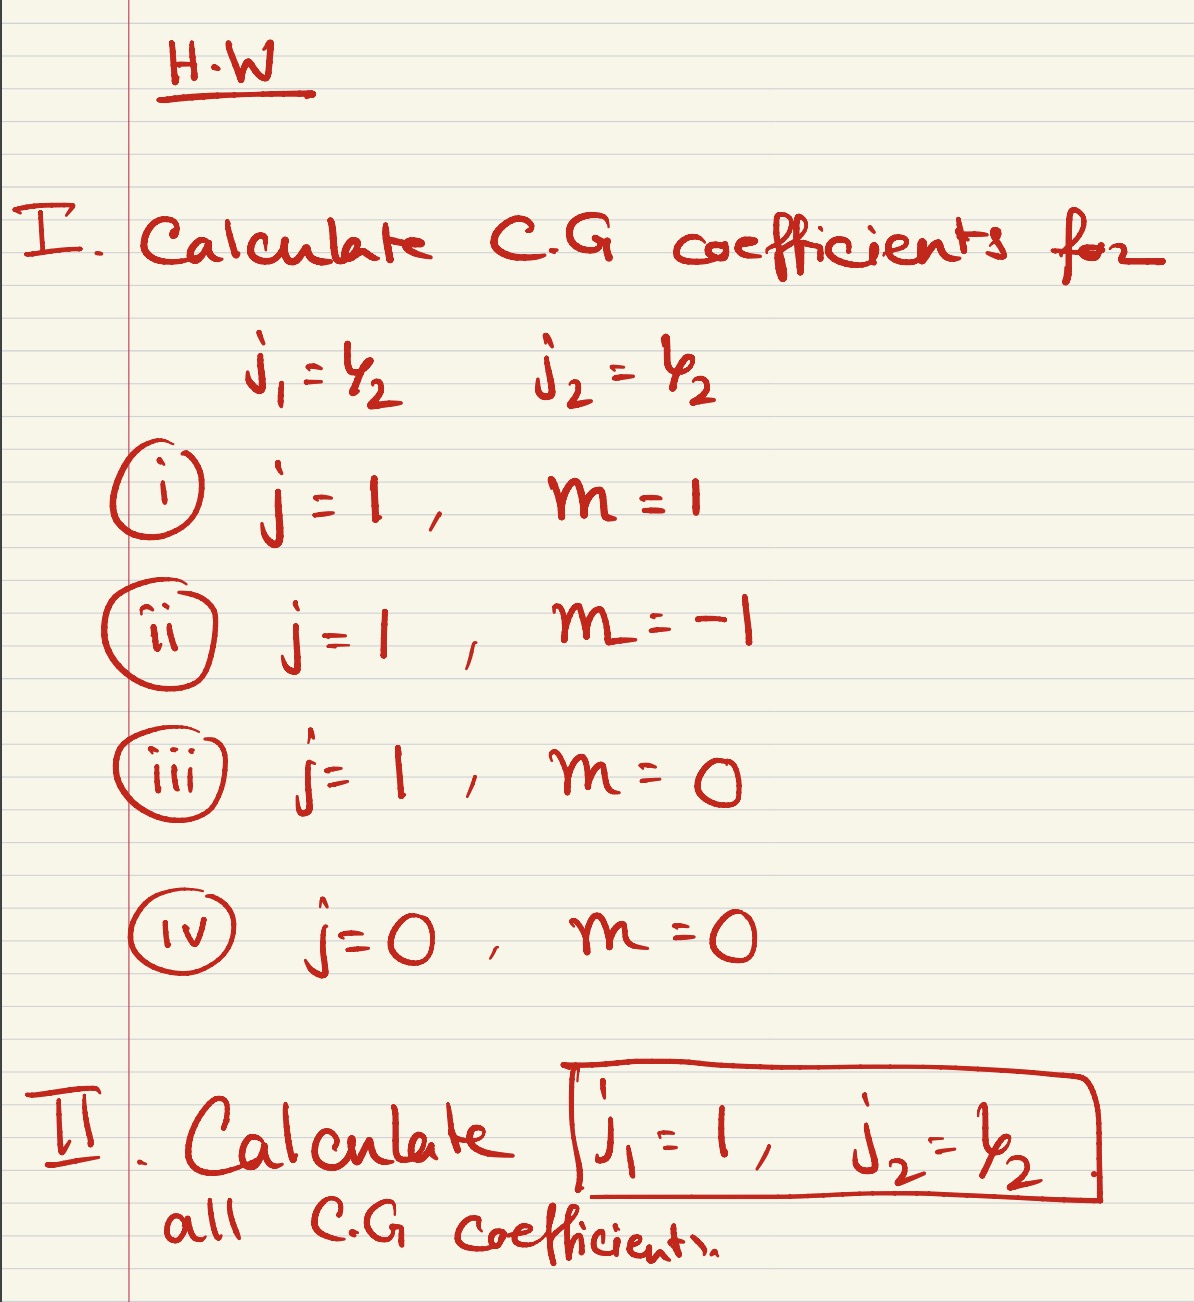 H.W
I. Calculate C.G coefficients for
j₁ = 1/2 j₂ = 1/2
i j = 1, m = 1
ii j = 1, m = -1
iii j = 1, m = 0
iv j = 0, m = 0
II. Calculate j₁ = 1, j₂ = 1/2
all C.G coefficients.